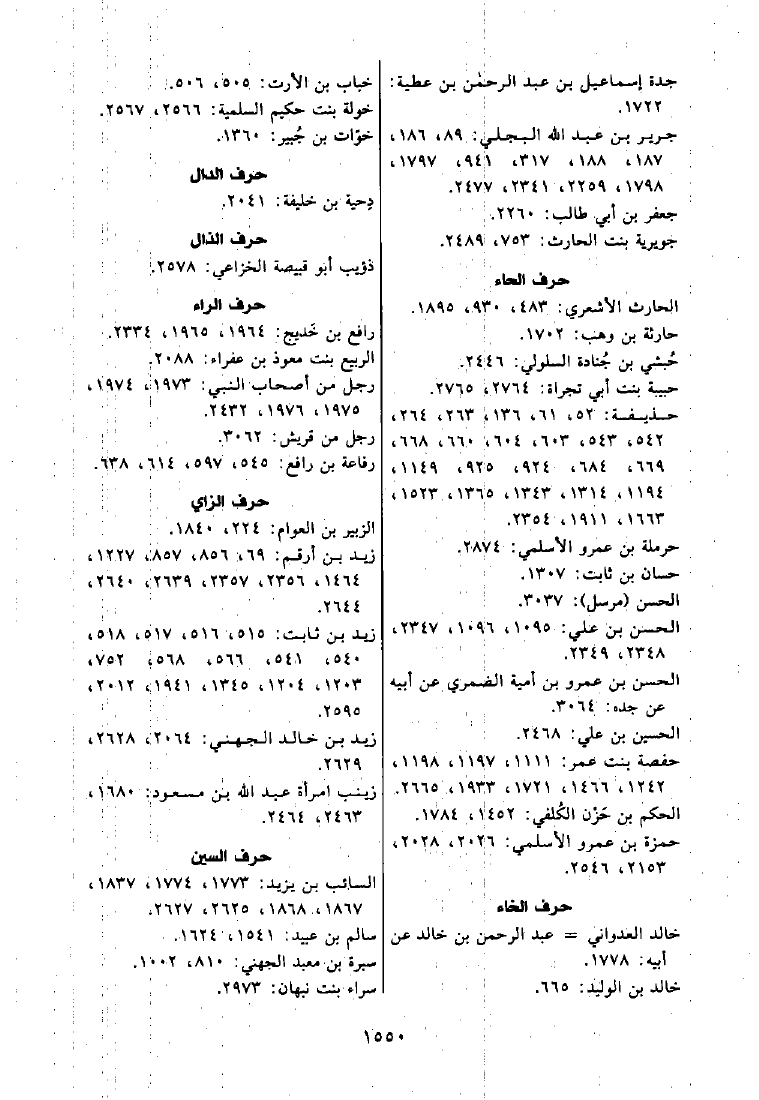 جدة إسماعيل بن عبد الرحمٰن بن عطية:
١٧٢٢.
جرير بن عبد الله البجلي: ٨٩، ١٨٦،
١٨٧، ١٨٨، ٣١٧، ٩٤١، ١٧٩٧،
١٧٩٨، ٢٢٥٩، ٢٣٤١، ٢٤٧٧.
جعفر بن أبي طالب: ٢٢٦٠.
جويرية بنت الحارث: ٧٥٣، ٢٤٨٩.
حرف الحاء
الحارث الأشعري: ٤٨٣، ٩٣٠، ١٨٩٥.
حارثة بن وهب: ١٧٠٢.
حُبشي بن جُنادة السلولي: ٢٤٤٦.
حبيبة بنت أبي تجراة: ٢٧٦٤، ٢٧٦٥.
حذيفة: ٥٢، ٦١، ١٣٦، ٢٦٣، ٢٦٤،
٥٤٢، ٥٤٣، ٦٠٣، ٦٠٤، ٦٦٠، ٦٦٨،
٦٦٩، ٦٨٤، ٩٢٤، ٩٢٥، ١١٤٩،
١١٩٤، ١٣١٤، ١٣٤٣، ١٣٦٥، ١٥٢٣،
١٦٦٣، ١٩١١، ٢٣٥٤.
حرملة بن عمرو الأسلمي: ٢٨٧٤.
حسان بن ثابت: ١٣٠٧.
الحسن (مرسل): ٣٠٣٧.
الحسن بن علي: ١٠٩٥، ١٠٩٦، ٢٣٤٧،
٢٣٤٨، ٢٣٤٩.
الحسن بن عمرو بن أمية الضمري عن أبيه
عن جده: ٣٠٦٤.
الحسين بن علي: ٢٤٦٨.
حفصة بنت عمر: ١١١١، ١١٩٧، ١١٩٨،
١٢٤٢، ١٤٦٦، ١٧٢١، ١٩٣٣، ٢٦٦٥.
الحكم بن حَزْن الكُلفي: ١٤٥٢، ١٧٨٤.
حمزة بن عمرو الأسلمي: ٢٠٢٦، ٢٠٢٨،
٢١٥٣، ٢٥٤٦.
حرف الخاء
خالد العدواني = عبد الرحمن بن خالد عن
أبيه: ١٧٧٨.
خالد بن الوليد: ٦٦٥.
خباب بن الأرت: ٥٠٥، ٥٠٦.
خولة بنت حكيم السلمية: ٢٥٦٦، ٢٥٦٧.
خوّات بن جُبير: ١٣٦٠.
حرف الدال
دِحية بن خليفة: ٢٠٤١.
حرف الذال
ذؤيب أبو قبيصة الخزاعي: ٢٥٧٨.
حرف الراء
رافع بن خَديج: ١٩٦٤، ١٩٦٥، ٢٣٣٤.
الربيع بنت معوذ بن عفراء: ٢٠٨٨.
رجل من أصحاب النبي: ١٩٧٣، ١٩٧٤،
١٩٧٥، ١٩٧٦، ٢٤٣٢.
رجل من قريش: ٣٠٦٢.
رفاعة بن رافع: ٥٤٥، ٥٩٧، ٦١٤، ٦٣٨.
حرف الزاي
الزبير بن العوام: ٢٢٤، ١٨٤٠.
زيد بن أرقم: ٦٩، ٨٥٦، ٨٥٧، ١٢٢٧،
١٤٦٤، ٢٣٥٦، ٢٣٥٧، ٢٦٣٩، ٢٦٤٠،
٢٦٤٤.
زيد بن ثابت: ٥١٥، ٥١٦، ٥١٧، ٥١٨،
٥٤٠، ٥٤١، ٥٦٦، ٥٦٨، ٧٥٢،
١٢٠٣، ١٢٠٤، ١٣٤٥، ١٩٤١، ٢٠١٢،
٢٥٩٥.
زيد بن خالد الجهني: ٢٠٦٤، ٢٦٢٨،
٢٦٢٩.
زينب امرأة عبد الله بن مسعود: ١٦٨٠،
٢٤٦٣، ٢٤٦٤.
حرف السين
السائب بن يزيد: ١٧٧٣، ١٧٧٤، ١٨٣٧،
١٨٦٧، ١٨٦٨، ٢٦٢٥، ٢٦٢٧.
سالم بن عبيد: ١٥٤١، ١٦٢٤.
سبرة بن معبد الجهني: ٨١٠، ١٠٠٢.
سراء بنت نبهان: ٢٩٧٣.
١٥٥٠